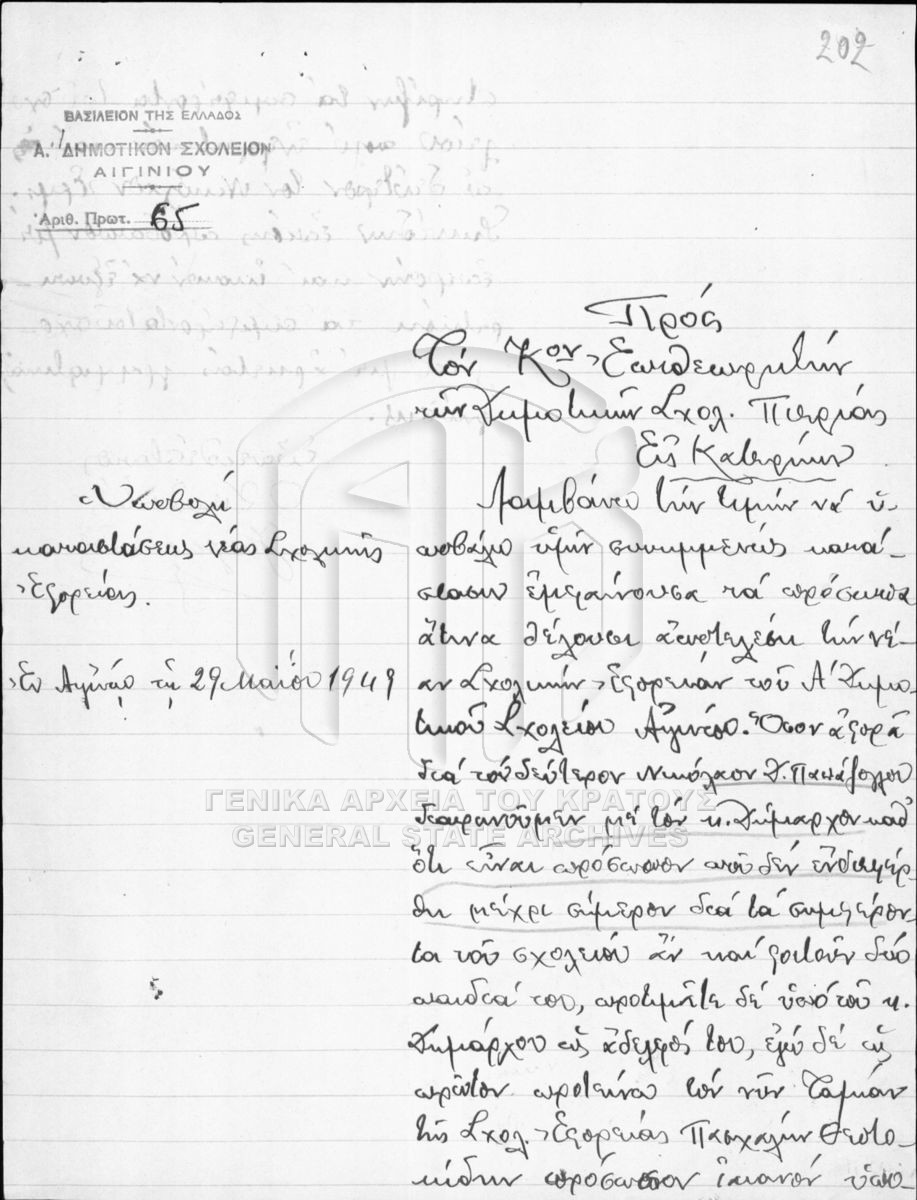 202
ΒΑΣΙΛΕΙΟΝ ΤΗΣ ΕΛΛΑΔΟΣ
Α. ΔΗΜΟΤΙΚΟΝ ΣΧΟΛΕΙΟΝ
ΑΙΓΙΝΙΟΥ
Ἀριθ. Πρωτ. 65
Πρός
Τόν Κον Ἐπιθεωρητήν
τῶν Δημοτικῶν Σχολ. Πιερίας
Εἰς Κατερίνην
Ὑποβολή
καταστάσεως νέας Σχολικῆς
Ἐφορείας.
Ἐν Αἰγινίῳ τῇ 29 Μαΐου 1949
Λαμβάνω τήν τιμήν νά ὑ-
ποβάλω ὑμῖν συνημμένως κατά-
στασιν ἐμφαίνουσα τά πρόσωπα
ἅτινα θέλουσι ἀποτελέσει τήν νέ-
αν Σχολικήν Ἐφορείαν τοῦ Α' Δημο-
τικοῦ Σχολείου Αἰγινίου. Ὅσον ἀφορᾶ
διά τόν δεύτερον Νικόλαον Δ. Παπάζογλου
διαφωνοῦμεν μέ τόν κ. Δήμαρχον καθ'
ὅτι εἶναι πρόσωπον πού δέν ἐνδιαφέρ-
θη μέχρι σήμερον διά τά συμφέρον-
τα τοῦ σχολείου ἄν καί φοιτοῦν δύο
παιδιά του, προτιμᾶτε δέ ὑπό τοῦ κ.
Δημάρχου ὡς ἀδελφός του, ἐγώ δέ ὡς
πρῶτον προτείνω τόν νῦν Ταμίαν
τῆς Σχολ. Ἐφορείας Πασχαλήν Θεοτο-
κίδην πρόσωπον ἱκανόν ὑπο-
ΓΕΝΙΚΑ ΑΡΧΕΙΑ ΤΟΥ ΚΡΑΤΟΥΣ
GENERAL STATE ARCHIVES